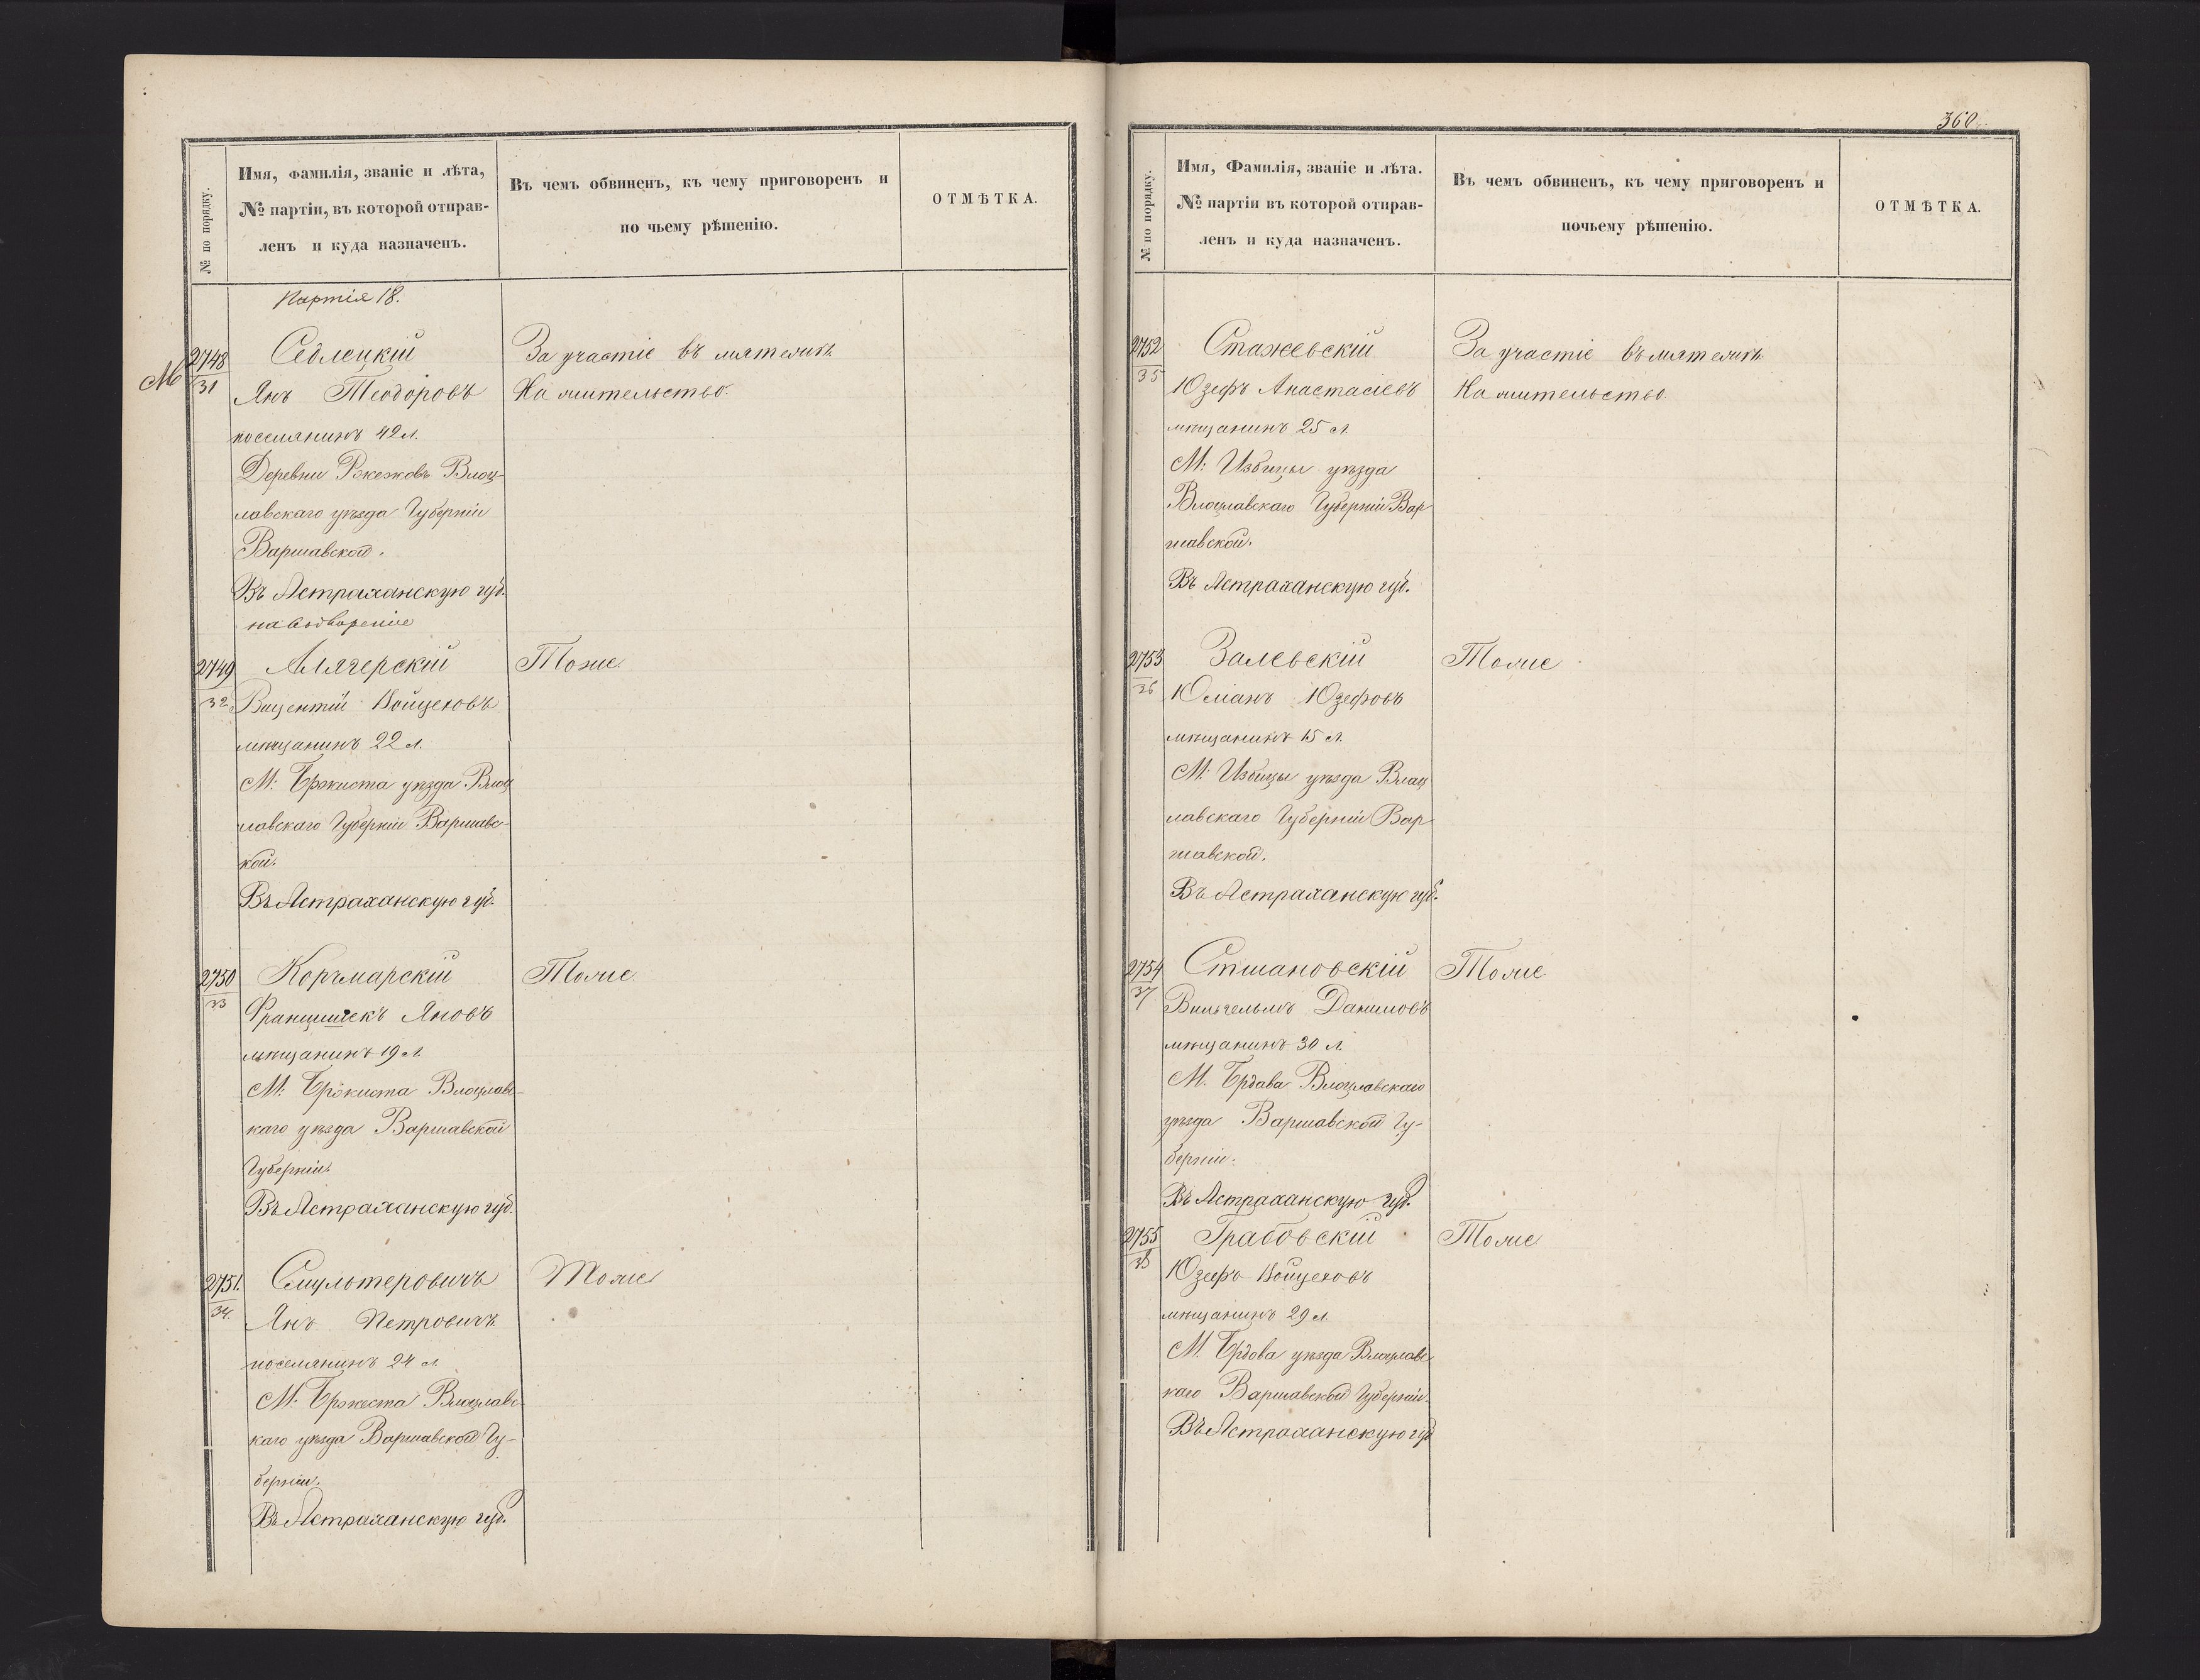 360
№ по порядку.
Имя, фамилія, званіе и лѣта,
№ партіи, въ которой отправ-
ленъ и куда назначенъ.
Въ чемъ обвиненъ, къ чему приговоренъ и
по чьему рѣшенію.
ОТМѢТКА.
Партія 18.
М
2748
31
Седлецкій
Янъ Теодоровъ
поселянинъ 42 л.
Деревни Ржежовъ Влоц-
лавскаго уѣзда Губерніи
Варшавской.
Въ Астраханскую губ.
на водвореніе
За участіе въ мятежѣ
На жительство.
2749
32
Вицентій Войцеховъ
мѣщанинъ 22 л.
М: Бржиста уѣзда Влоц
лавскаго Губерніи Варшавс-
кой.
Въ Астраханскую губ.
Тоже
2750
33
Корчмарскій
Францишекъ Яновъ
мѣщанинъ 19 л.
М: Бржиста Влоцлавс-
каго уѣзда Варшавской
Губерніи.
Въ Астраханскую губ.
Тоже.
2751.
34.
Смультеровичъ
Янъ Петровичъ
поселянинъ 24 л.
М: Бржеста Влоцлавс-
каго уѣзда Варшавской Гу-
берніи.
Въ Астраханскую губ.
Тоже
№ по порядку.
Имя, Фамилія, званіе и лѣта.
№ партіи въ которой отправ-
ленъ и куда назначенъ.
Въ чемъ обвиненъ, къ чему приговоренъ и
почьему рѣшенію.
ОТМѢТКА.
2752
35
Стажевскій
Юзефъ Анастасіевъ
мѣщанинъ 25 л.
М: Избицы уѣзда
Влоцлавскаго Губерніи Вар
шавской.
Въ Астраханскую губ.
За участіе въ мятежѣ
На жительство
2753
36
Залевскій
Юліанъ Юзефовъ
мѣщанинъ 15 л.
М: Избицы уѣзда Влоц
лавскаго Губерніи Вар
шавской.
Въ Астраханскую губ.
Тоже
2754
37
Стшановскій
Вильгельмъ Даниловъ
мѣщанинъ 30 л.
М. Брдава Влоцлавскаго
уѣзда Варшавской Гу-
берніи.
Въ Астраханскую губ.
Тоже
2755
38
Грабовскій
Юзефъ Войцеховъ
мѣщанинъ 29 л.
М. Брдова уѣзда Влоцлавс
каго Варшавской Губерніи.
Въ Астраханскую губ
Тоже